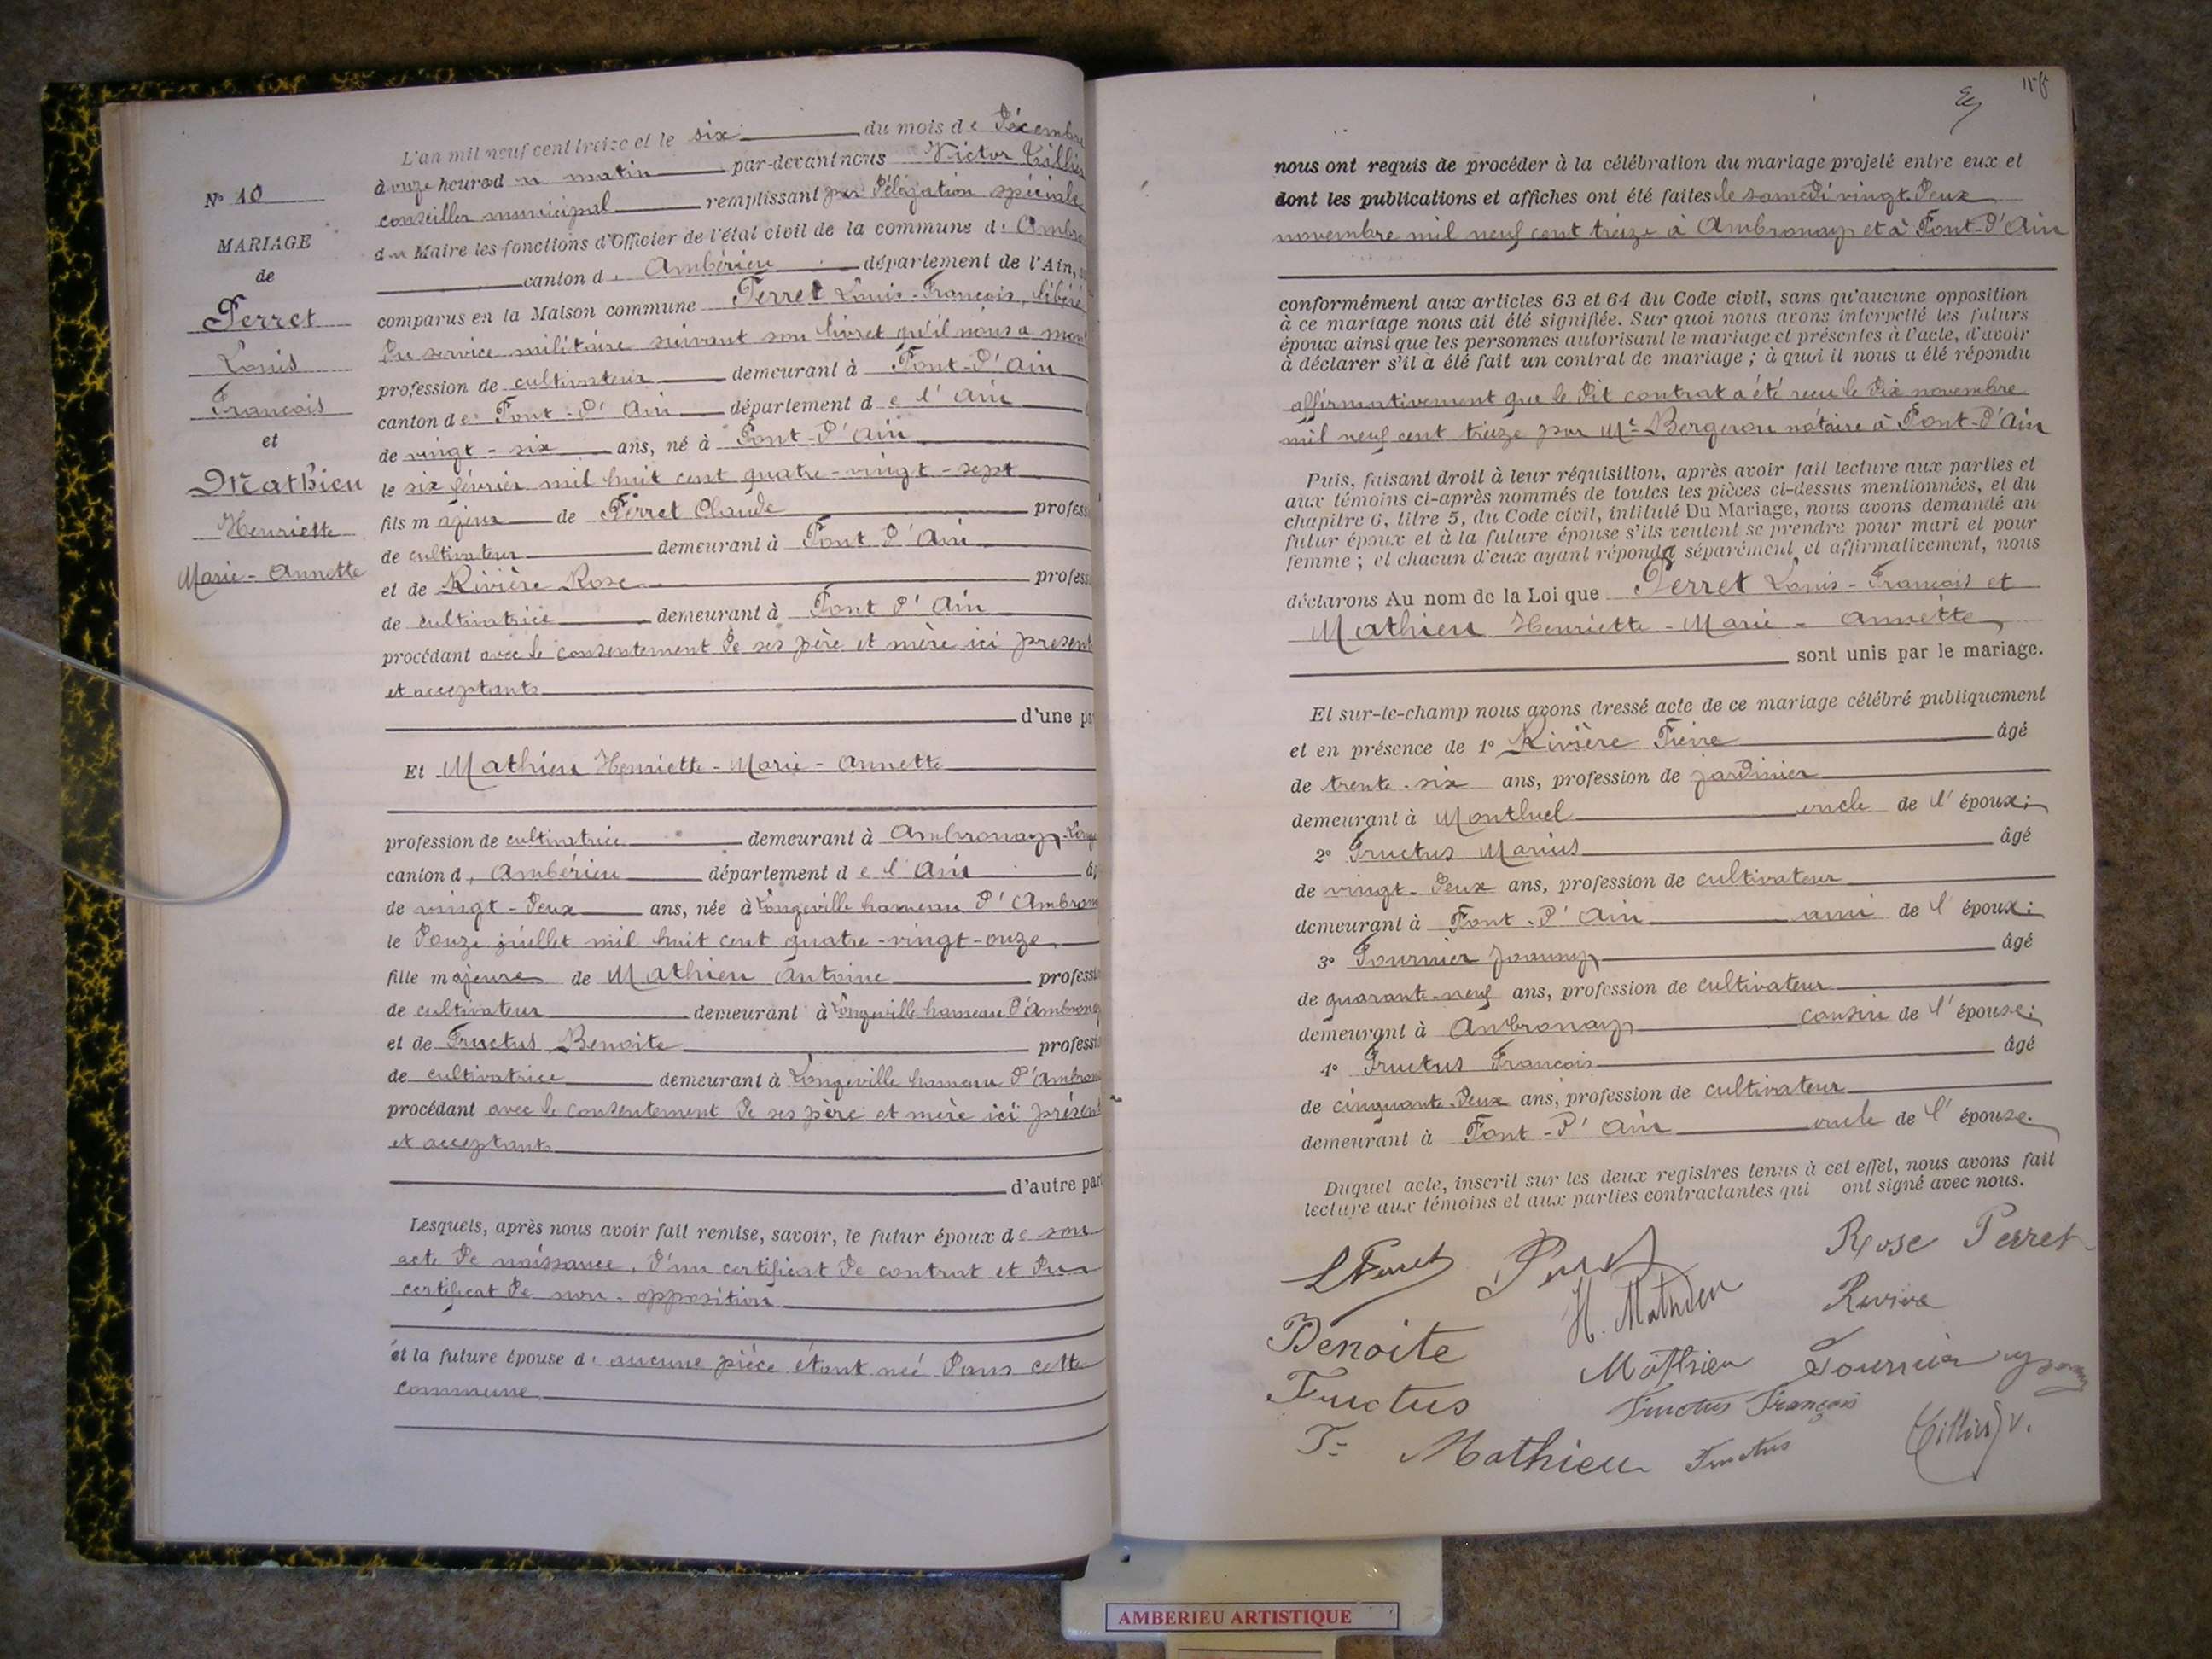 N° 10
MARIAGE
de
Perret
Louis
François
et
Mathieu
Henriette
Marie-Annette
L'an mil neuf cent treize et le six du mois de Décembre
à onze heures du matin par-devant nous Victor Tillier
conseiller municipal remplissant par Délégation spéciale
du Maire les fonctions d'Officier de l'état civil de la commune d' Ambro
canton d' Ambérieu département de l'Ain,
comparus en la Maison commune Perret Louis-François, libéré
du service militaire suivant son livret qu'il nous a mon
profession de cultivateur demeurant à Pont-d'Ain
canton de Pont-d'Ain département de l'Ain
de vingt-six ans, né à Pont-d'Ain
le six février mil huit cent quatre-vingt-sept
fils majeur de Perret Claude profess
de cultivateur demeurant à Pont d'Ain
et de Rivière Rose profess
de cultivatrice demeurant à Pont d'Ain
procédant avec le consentement de ses père et mère ici présent
et acceptants
d'une pa
Et Mathieu Henriette-Marie-Annette
profession de cultivatrice demeurant à Ambronay-Long
canton d' Ambérieu département de l'Ain â
de vingt-deux ans, née à Longeville hameau d'Ambron
le douze juillet mil huit cent quatre-vingt-onze
fille majeure de Mathieu Antoine professi
de cultivateur demeurant à Longeville hameau d'Ambronay
et de Fructus Benoite professi
de cultivatrice demeurant à Longeville hameau d'Ambron
procédant avec le consentement de ses père et mère ici présent
et acceptants
d'autre part
Lesquels, après nous avoir fait remise, savoir, le futur époux de son
acte de naissance, d'un certificat de contrat et d'un
certificat de non-opposition
et la future épouse d' aucune pièce étant née dans cette
commune
nous ont requis de procéder à la célébration du mariage projeté entre eux et
dont les publications et affiches ont été faites le samedi vingt deux
novembre mil neuf cent treize à Ambronay et à Pont-d'Ain
conformément aux articles 63 et 64 du Code civil, sans qu'aucune opposition
à ce mariage nous ait été signifiée. Sur quoi nous avons interpellé les futurs
époux ainsi que les personnes autorisant le mariage et présentes à l'acte, d'avoir
à déclarer s'il a été fait un contrat de mariage ; à quoi il nous a été répondu
affirmativement que le dit contrat a été reçu le dix novembre
mil neuf cent treize par Me Bergeron notaire à Pont-d'Ain
Puis, faisant droit à leur réquisition, après avoir fait lecture aux parties et
aux témoins ci-après nommés de toutes les pièces ci-dessus mentionnées, et du
chapitre 6, titre 5, du Code civil, intitulé Du Mariage, nous avons demandé au
futur époux et à la future épouse s'ils veulent se prendre pour mari et pour
femme ; et chacun d'eux ayant répondu séparément et affirmativement, nous
déclarons Au nom de la Loi que Perret Louis-François et
Mathieu Henriette-Marie-Annette
sont unis par le mariage.
Et sur-le-champ nous avons dressé acte de ce mariage célébré publiquement
et en présence de 1° Rivière Pierre âgé
de trente-six ans, profession de jardinier
demeurant à Montluel oncle de l'époux;
2° Fructus Marius âgé
de vingt-deux ans, profession de cultivateur
demeurant à Pont-d'Ain ami de l'époux;
3° Fournier Joanny âgé
de quarante-neuf ans, profession de cultivateur
demeurant à Ambronay cousin de l'épouse;
4° Fructus François âgé
de cinquante-deux ans, profession de cultivateur
demeurant à Pont-d'Ain oncle de l'épouse.
Duquel acte, inscrit sur les deux registres tenus à cet effet, nous avons fait
lecture aux témoins et aux parties contractantes qui ont signé avec nous.
L Perret Perret Rose Perret
H. Mathieu Rivière
Benoite Mathieu Fournier
Fructus Fructus François
Mathieu Fructus Tillier V.
AMBERIEU ARTISTIQUE